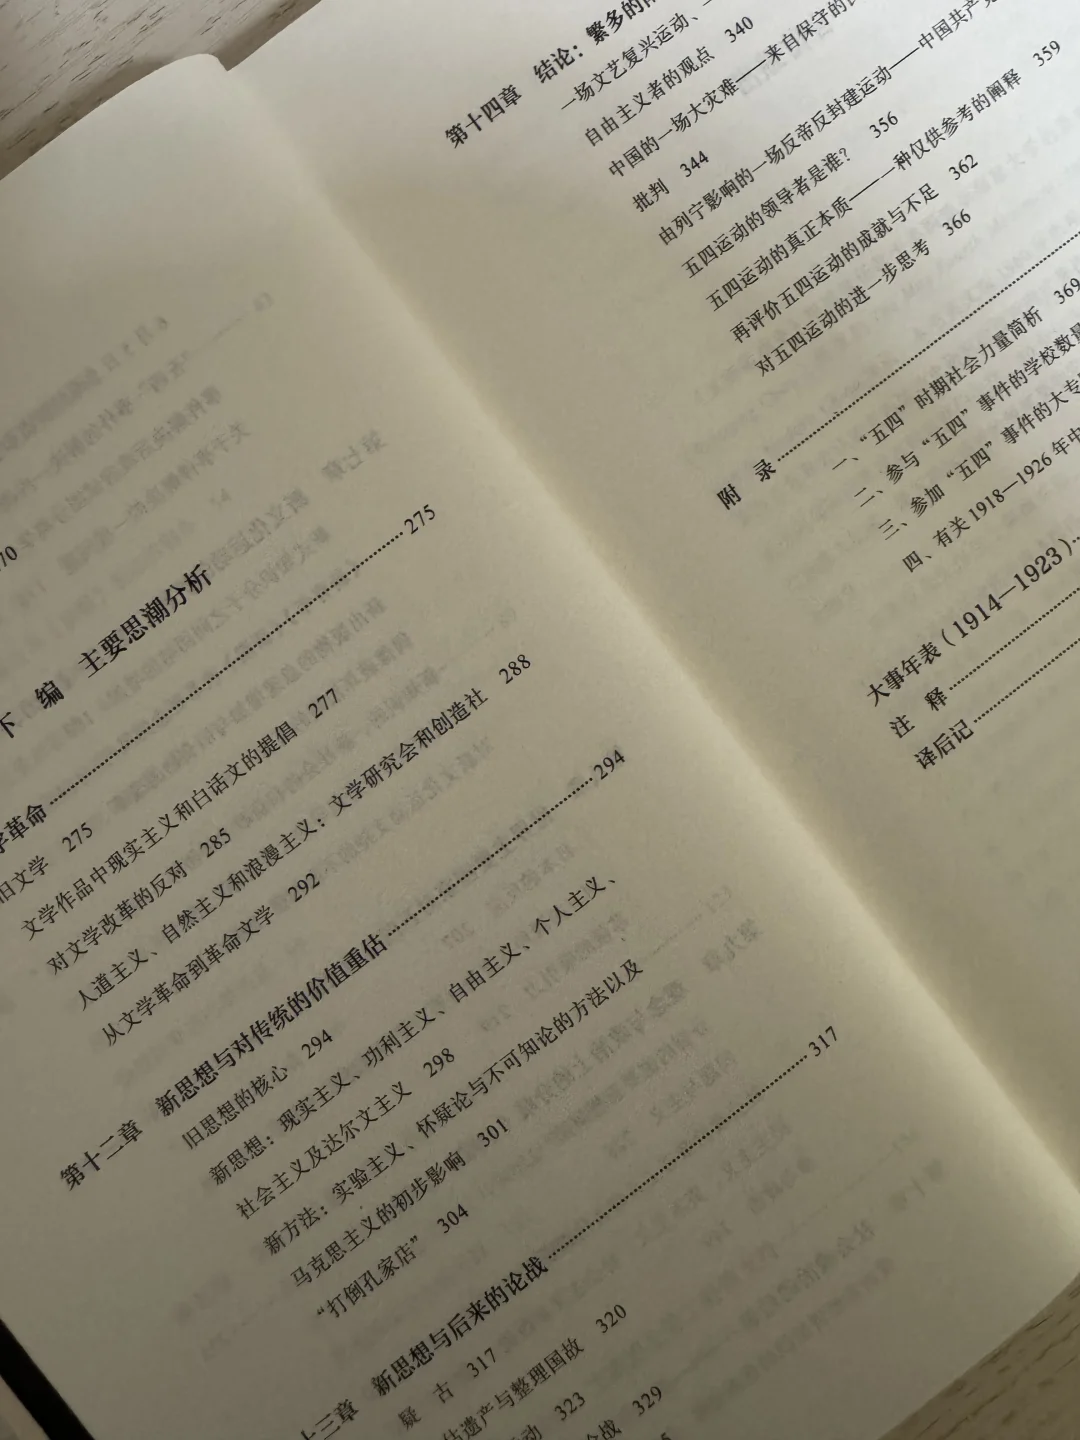 70
下 编 主要思潮分析
学革命 275
旧文学 275
文学作品中现实主义和白话文的提倡 277
对文学改革的反对 285
人道主义、自然主义和浪漫主义：文学研究会和创造社 288
从文学革命到革命文学 292
第十二章 新思想与对传统的价值重估 294
旧思想的核心 294
新思想：现实主义、功利主义、自由主义、个人主义、
社会主义及达尔文主义 298
新方法：实验主义、怀疑论与不可知论的方法以及
马克思主义的初步影响 301
“打倒孔家店” 304
十三章 新思想与后来的论战 317
疑 古 317
估遗产与整理国故 320
动 323
论战 329
第十四章 结论：繁多的
一场文艺复兴运动、
自由主义者的观点 340
中国的一场大灾难——来自保守的
批判 344
由列宁影响的一场反帝反封建运动——中国共产党
五四运动的领导者是谁？ 356
五四运动的真正本质——一种仅供参考的阐释 359
再评价五四运动的成就与不足 362
对五四运动的进一步思考 366
附 录
一、“五四”时期社会力量简析 369
二、参与“五四”事件的学校数量
三、参加“五四”事件的大专
四、有关1918—1926年中
大事年表（1914—1923）
注 释
译后记